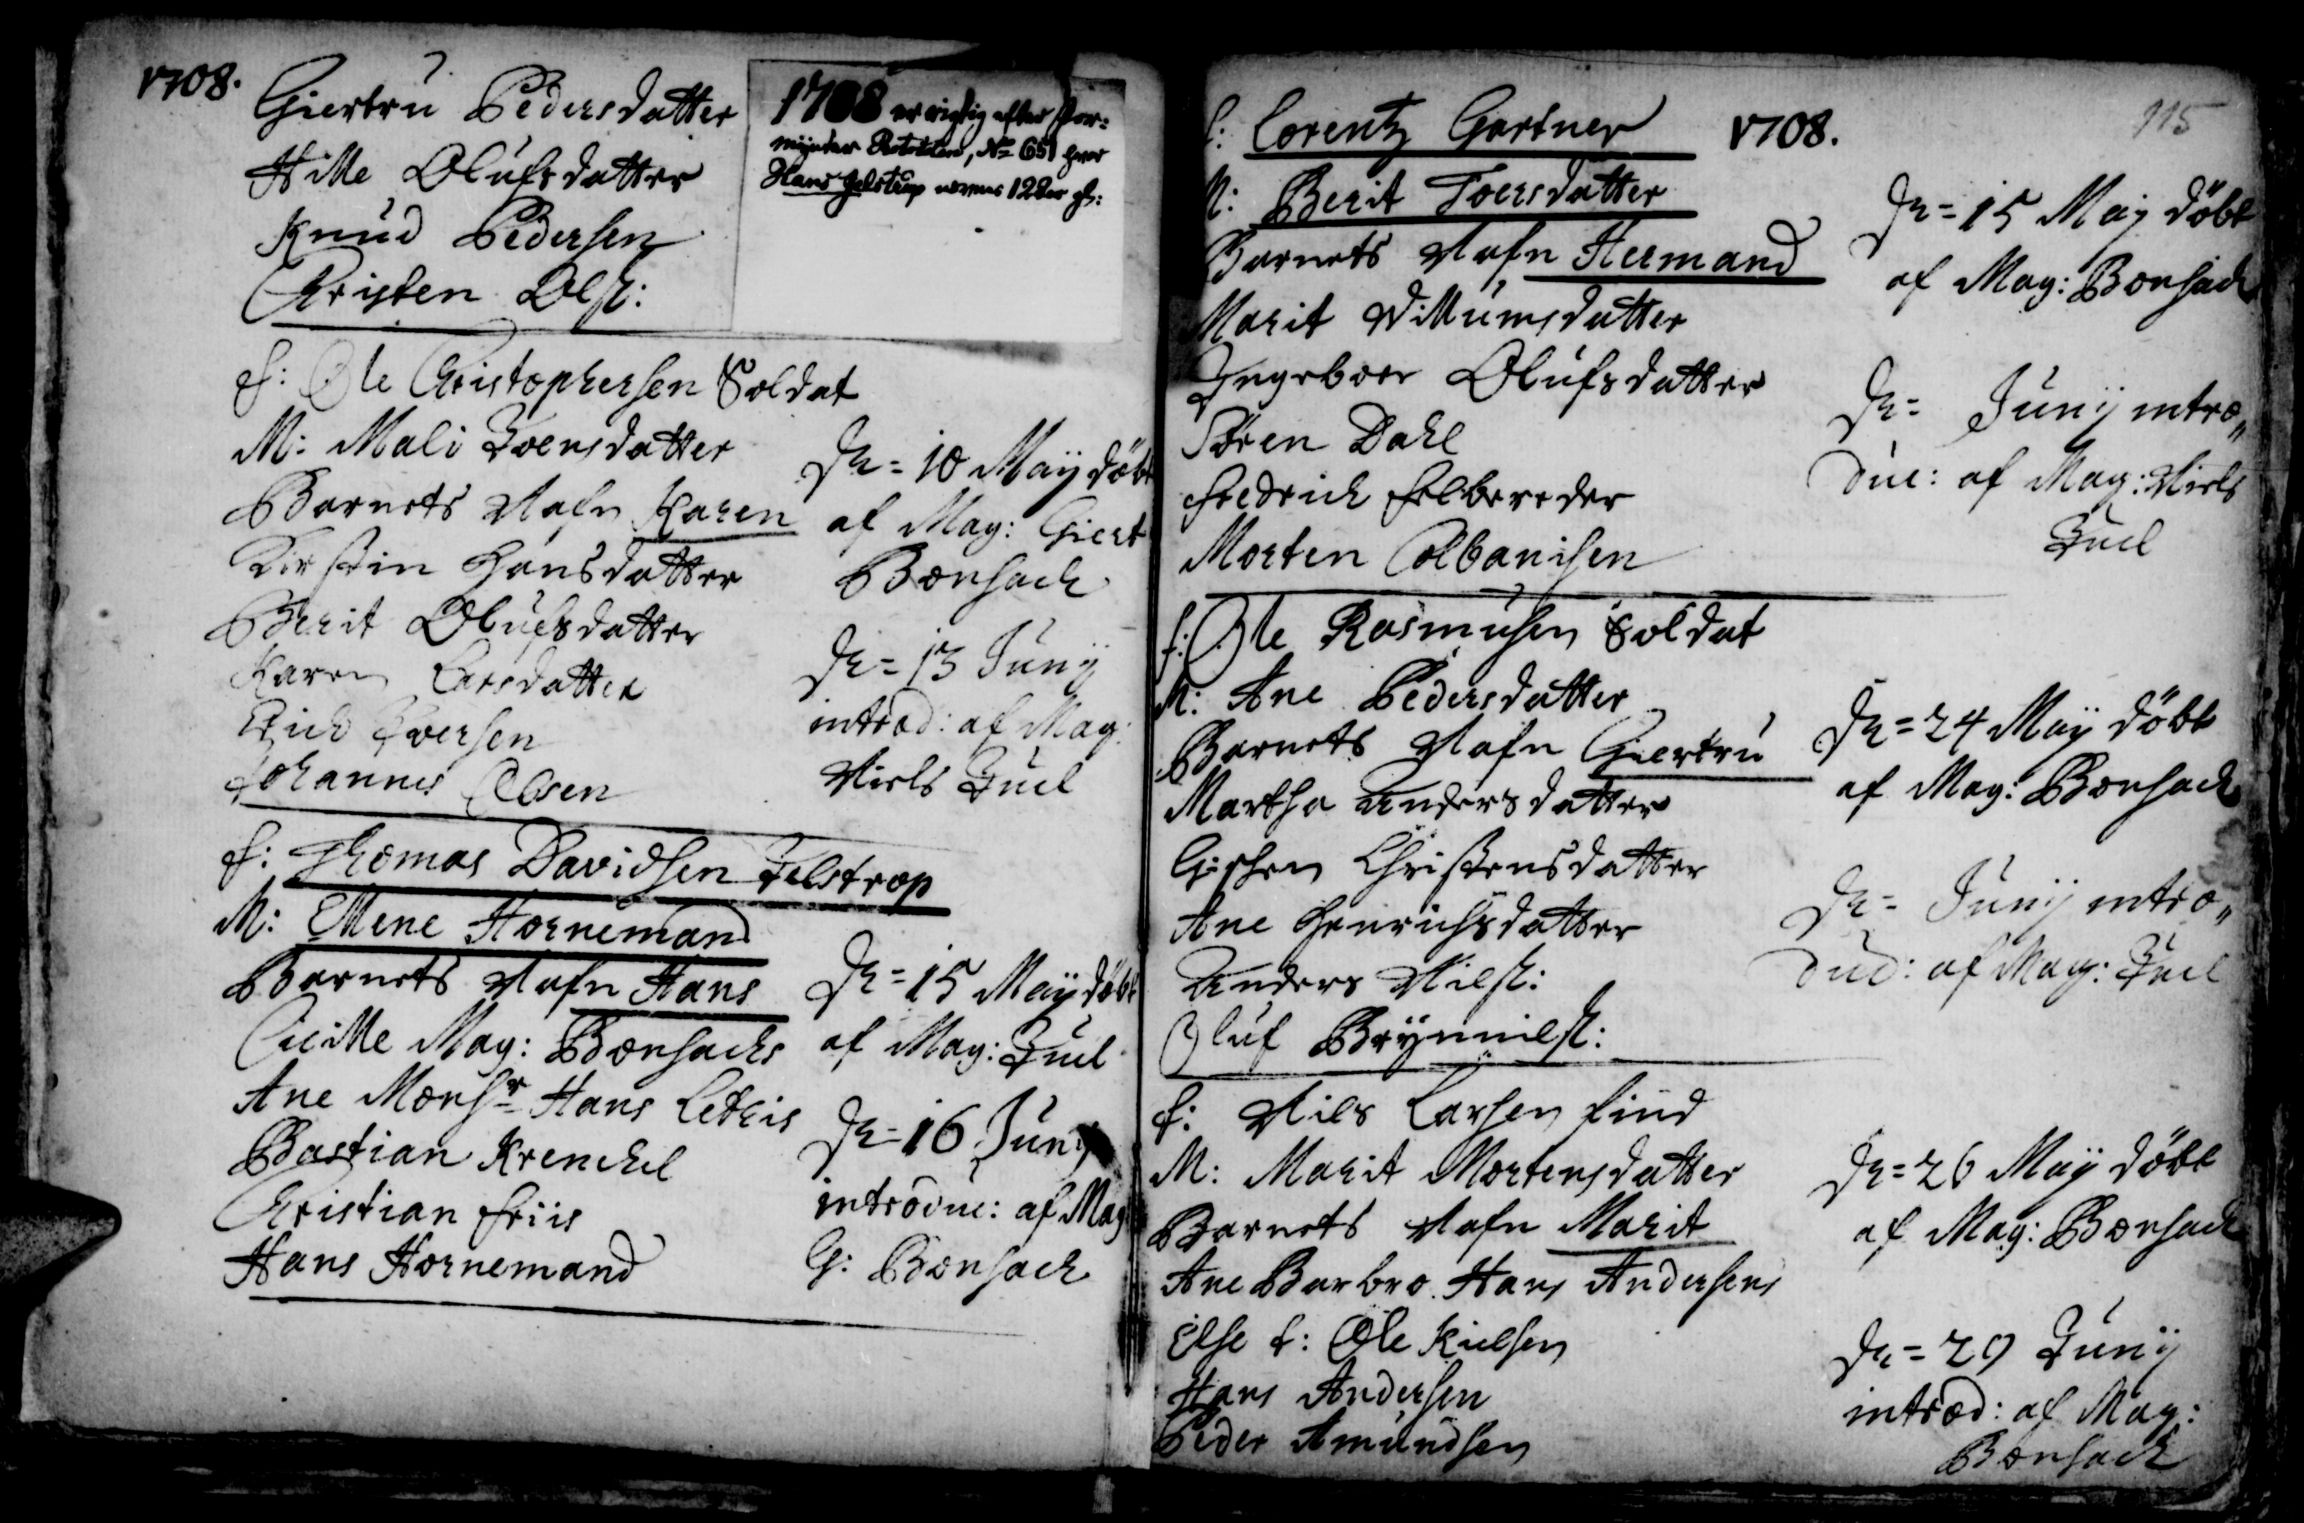 1708.
Giertru Pedersdatter
Hille Olufsdatter
Knud Pedersen
Christen Ols:
1708 er rigtig efter For=
mynder Protokolen, No 651 hvor
Hans Jelstrup nævnes 12 Aar gl:
f: Ole Christophersen Soldat
M: Mali Joensdatter
Barnets Nafn Karen
Kirstin Hansdatter
Berit Olufsdatter
Karen Larsdatter
Erich Iversen
Johannes Olsen
D= 10 Maij döbt
af Mag: Giert
Bonsach
D= 13 Junij
introd: af Mag:
Niels Juel
f: Thomas Davidsen Jelstrop
M: Mene Hornemand
Barnets Nafn Hans
Cicille Mag: Bonsachs
Ane Monsr Hans Lethis
Bastian Krenchel
Christian Friis
Hans Hornemand
D= 15 Maij döbt
af Mag: Juel
D= 16 Junij
introduc: af Mag
G: Bonsach
1708.
115
f: Lorentz Gartner
M: Berit Toersdatter
Barnets Nafn Hermand
Marit Willumsdatter
Ingeboer Olufsdatter
Søren Dahl
Fredrich Felbereder
Morten Albanisen
D= 15 Maij döbt
af Mag: Bonsach
D= Junij intro„
duc: af Mag: Niels
Juel
f: Ole Rasmusen Soldat
M: Ane Pedersdatter
Barnets Nafn Giertru
Martha Andersdatter
Christensdatter
Ane Henrichsdatter
Anders Nils:
Oluf Brynnils:
D= 24 Maij döbt
af Mag: Bonsach
D= Junij intro„
dud: af Mag: Juel
f: Nils Larsen Find
M: Marit Mortensdatter
Barnets Nafn Marit
Ane Barbro Hans Andersens
Else f: Ole Kielsen
Hans Andersen
Peder Amundsen
D= 26 Maij döbt
af Mag: Bonsach
D= 29 Junij
introd: af Mag:
Bonsach